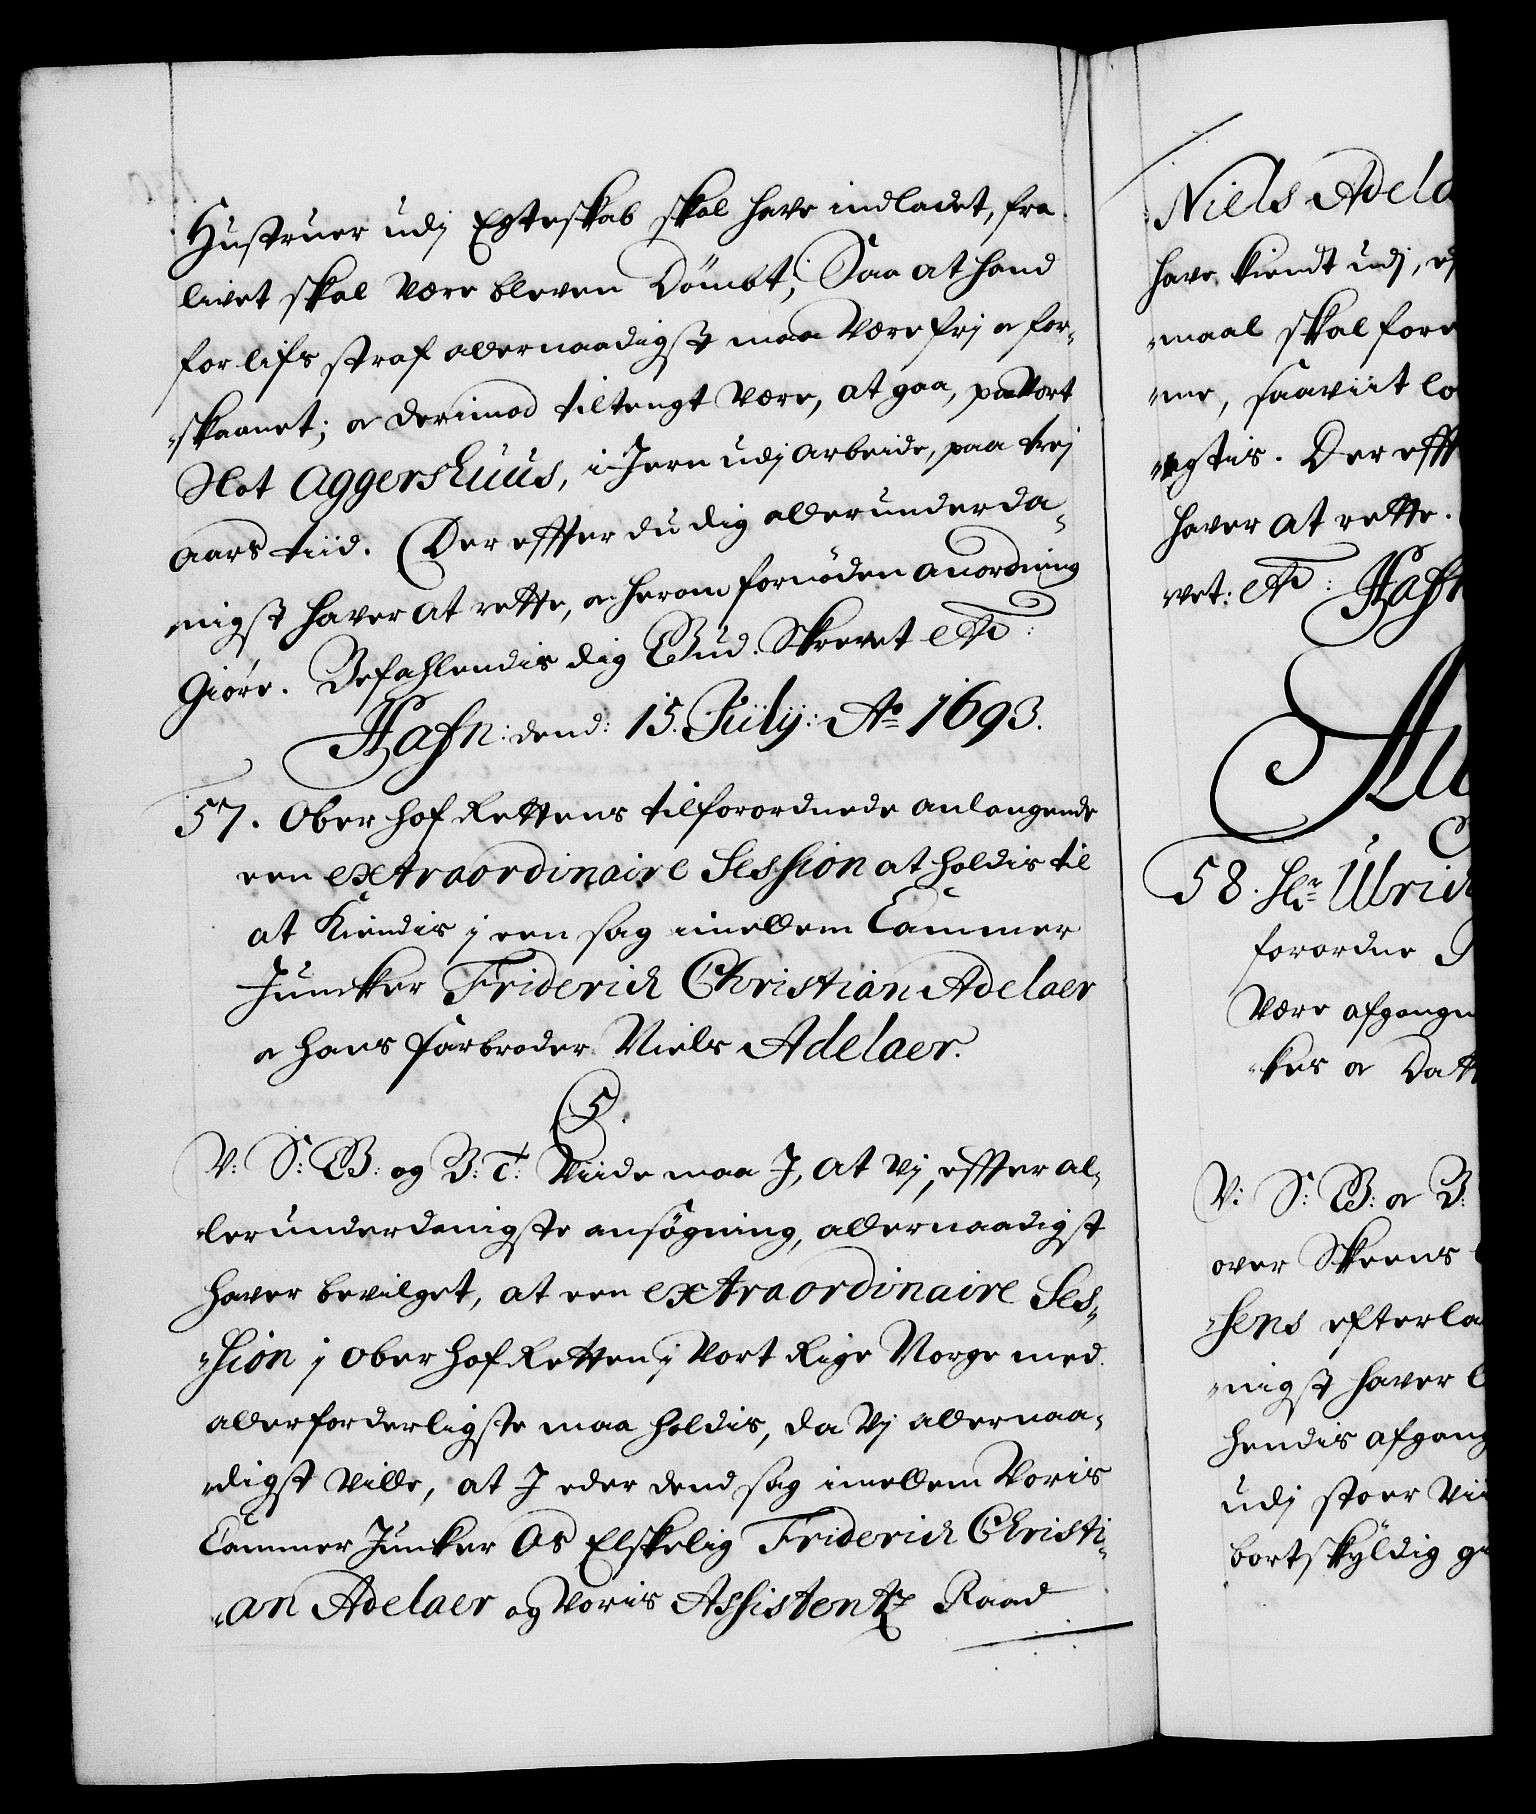 Hustruer udj Egteskab skal have indladet, fra
livet skal være bleven Dömbt, Saa at hand
for lifs straf allernaadigst maa være frj oc for-
skaanet; oc derimod tiltengt være, at gaa, paa Vort
Slot Aggershuus, i Jern udj Arbeide, paa trej
aars tiid. Der effter du dig allerunderda-
nigst haver at rette, oc herom fornöden anordning
Giöre. Befahlendis dig Gud. Skrevet etc:
Hafn: dend: 15. Julij: Ao 1693.
57. Ober Hof Rettens tilforordnede anlangende
een extraordinaire Session at holdis til
at Kiendis j een sag imellem Cammer
Juncker Friderich Christian Adelaer
oc hans farbroder Niels Adelaer.
C5.
V: S: G: og B: T: Viide maa J, at Vj, effter al-
lerunderdanigste ansøgning, allernaadigst
haver bevilget, at een extraordinaire Ses-
sion j Ober Hof Retten j Vort Rige Norge med
allerforderligste maa holdis, da Vj allernaa-
digst Ville, at J eder dend sag imellem Voris
Cammer Juncker Os Elskelig Friderich Christi-
an Adelaer og Voris Assistentz Raad
Niels Adela
have kiendt udj, ef
maal skal fore
me, saaviit lo
ngtis. Der efft
haver at rette.
vet. etc: Hafn
58. Hr Ulrich
forordne
være afgangn
kes oc Datt
V: S: G: oc B:
over Skeens
sens efterla
nigst haver
hendis afgang
udj stoer Vii
bortskyldig